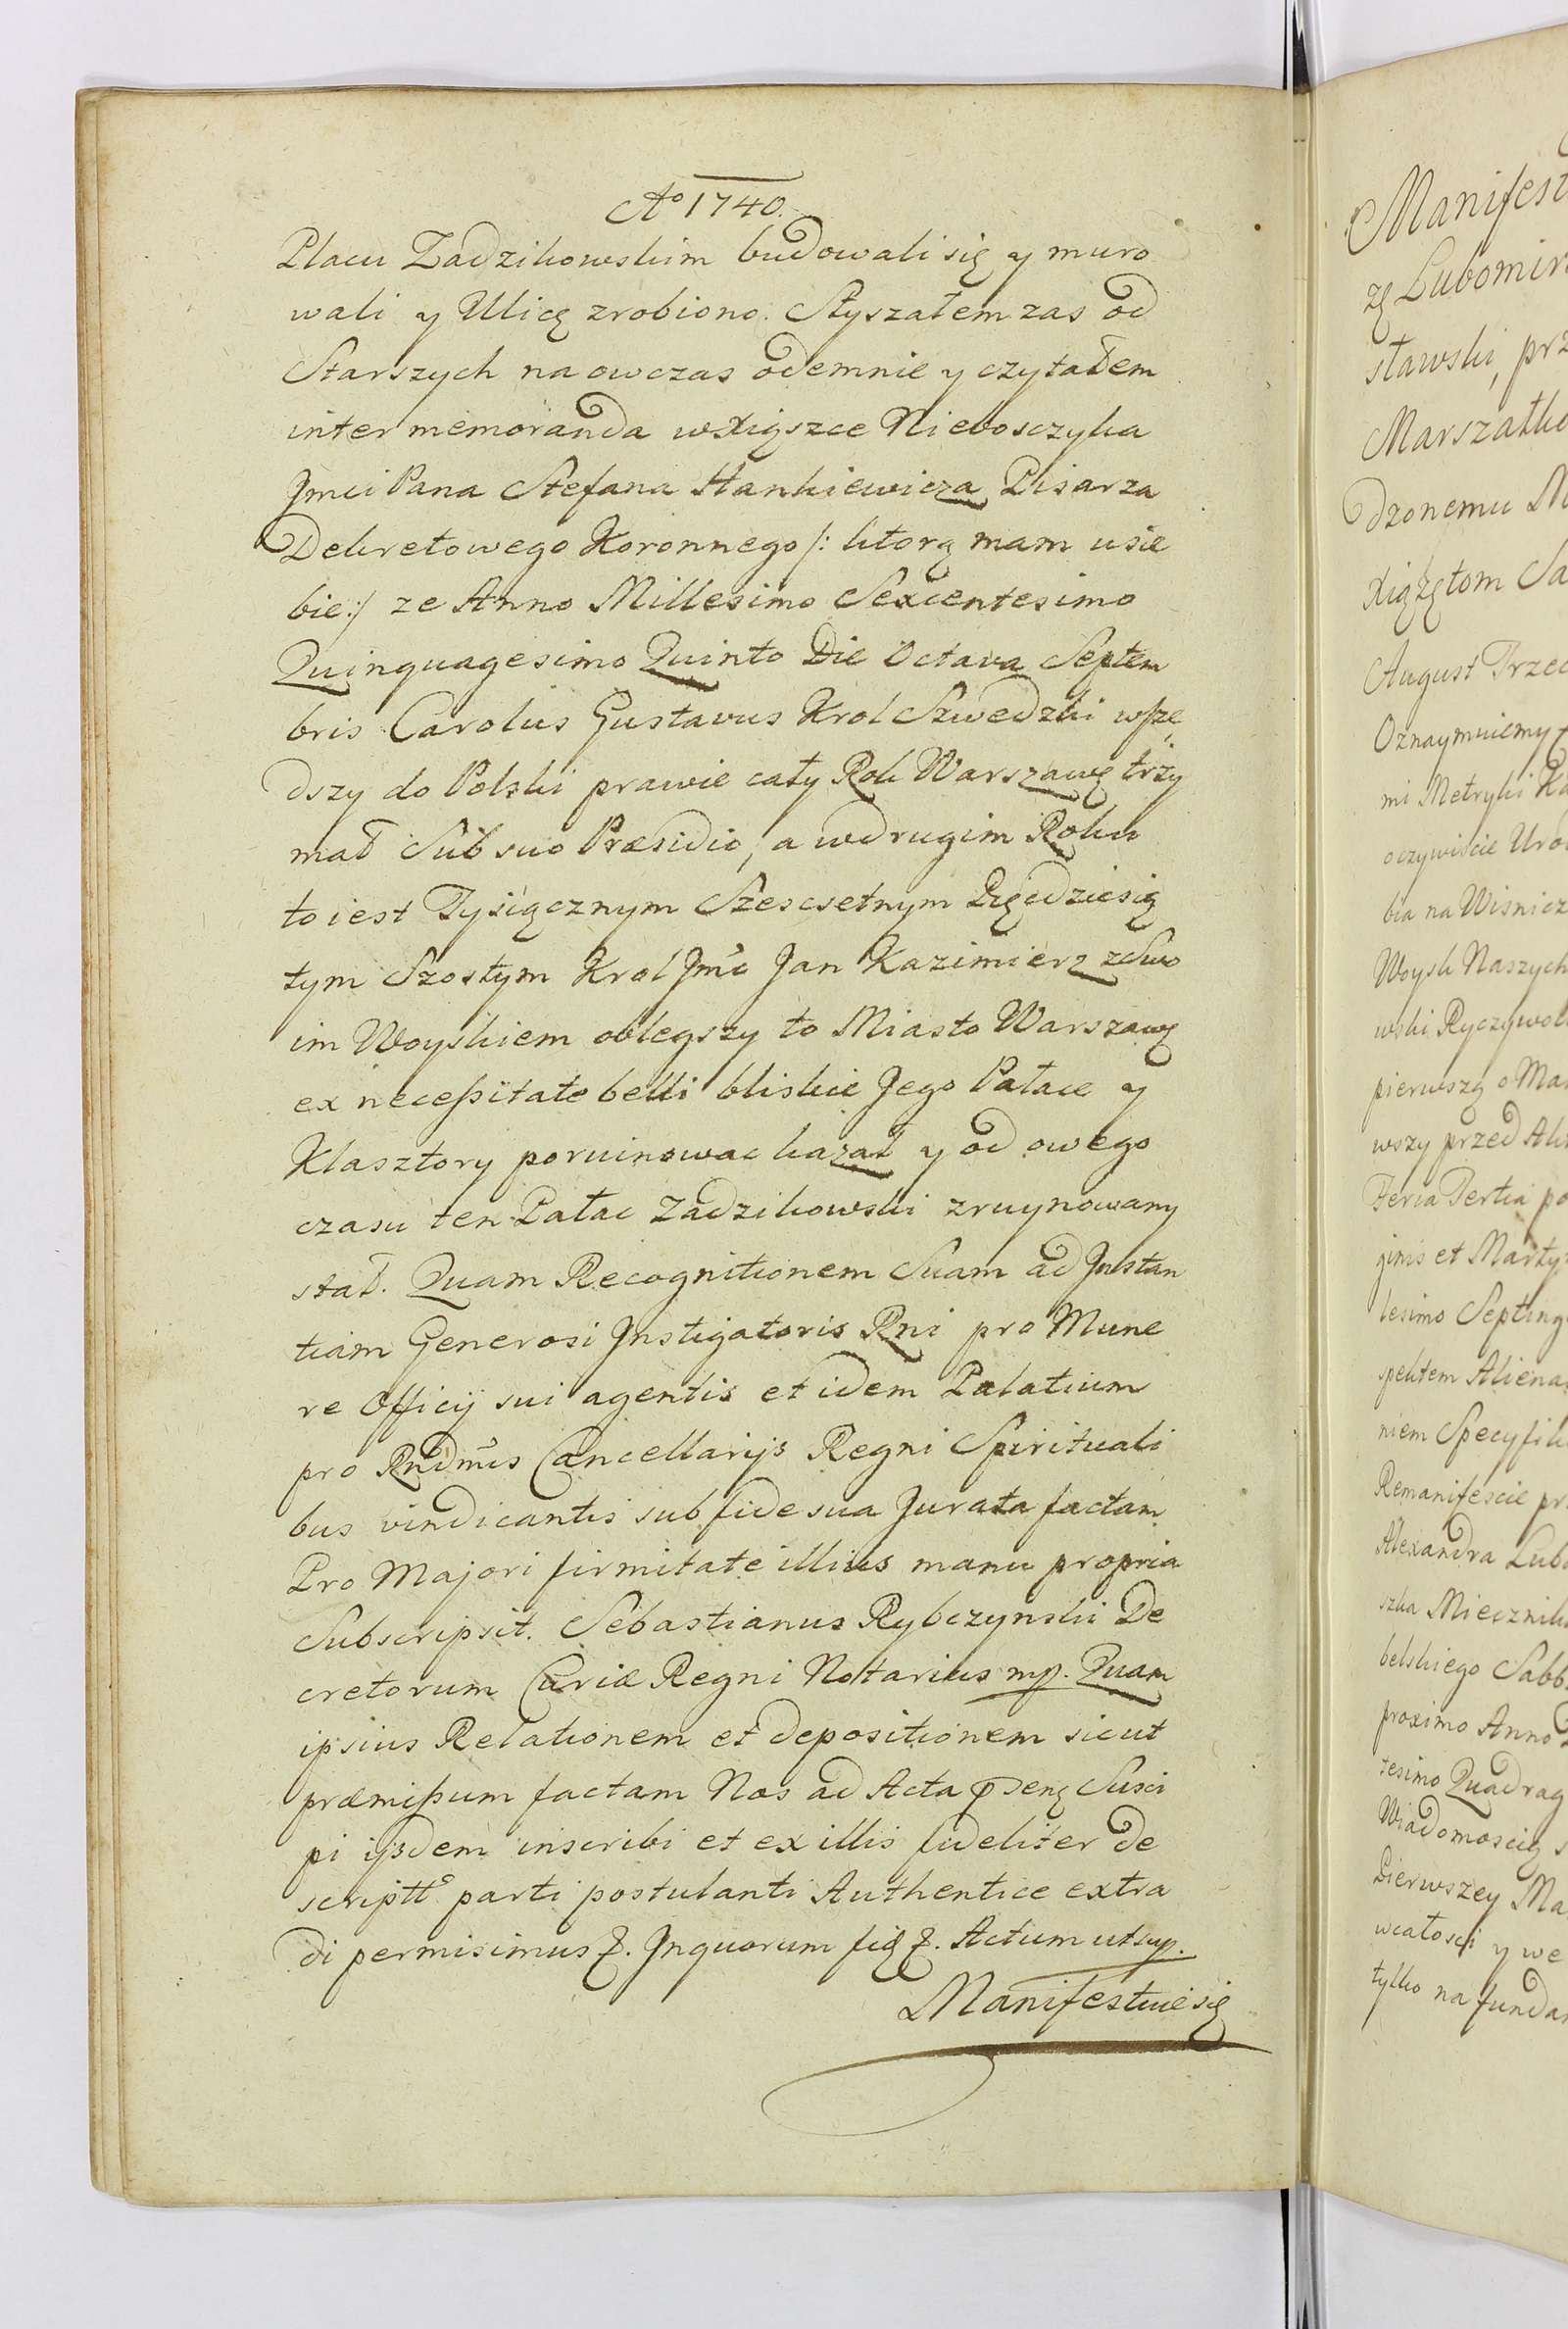 Ao 1740.
Placu Zadzikowskim budowali się y muro
wali y Ulicę zrobiono. Słyszałem zas od
Starszych na owczas odemnie y czytałem
inter memoranda w Xięszce Nieboszczyka
Jmci Pana Stefana Hankiewicza Pisarza
Dekretowego Koronnego /: ktorą mam u sie
bie :/ ze Anno Millesimo Sexcentesimo
Quinquagesimo Quinto Die Octava Septem
bris Carolus Gustavus Krol Szwedzki wsze
dszy do Polski prawie cały Rok Warszawę trzy
mał Sub suo Præsidio, a w drugim Roku
to iest Tysiącznym Szescsetnym Pięcdziesią
tym Szostym Krol Jmc Jan Kazimierz z Swo
im Woyskiem oblegszy to Miasto Warszawę
ex necessitate belli bliskie Jego Pałace y
Klasztory poruinowac kazał y od owego
czasu ten Pałac Zadzikowski zruynowany
stał. Quam Recognitionem Suam ad Jnstan
tiam Generosi Jnstigatoris Rni pro Mune
re Officij sui agentis et idem Palatium
pro Rndmis Cancellarijs Regni Spirituali
bus vindicantis sub fide sua Jurata factam
Pro Majori firmitate illius manu propria
Subscripsit. Sebastianus Rybczynski De
cretorum Curiæ Regni Notarius mp. Quam
ipsius Relationem et depositionem sicut
præmissum factam Nos ad Acta psentia Susci
pi ijsdem inscribi et ex illis fideliter de
scriptt parti postulanti Authentice extra
di permisimus &. Jn quorum fid &. Actum ut sup.
Manifestuie się
Manifest
zę Lubomir
sławski, prz
Marszałko
dzonemu M
Xiążętom Sa
August Trzec
Oznaymuiemy
mi Metryki Ko
oczywiscie Uro
bia na Wisnicz
Woysk Naszych
wski Ryczywol
pierwszą o Ma
wszy przed Ak
Feria Tertia po
ginis et Marty
lesimo Septing
spektem Aliena
niem Specyfik
Remanifescie pr
Alexandra Lub
szka Miecznik
belskiego Sabb
proximo Anno
tesimo Quadrag
Wiadomoscią
Pierwszey Ma
wcałosci y we
tylko na funda